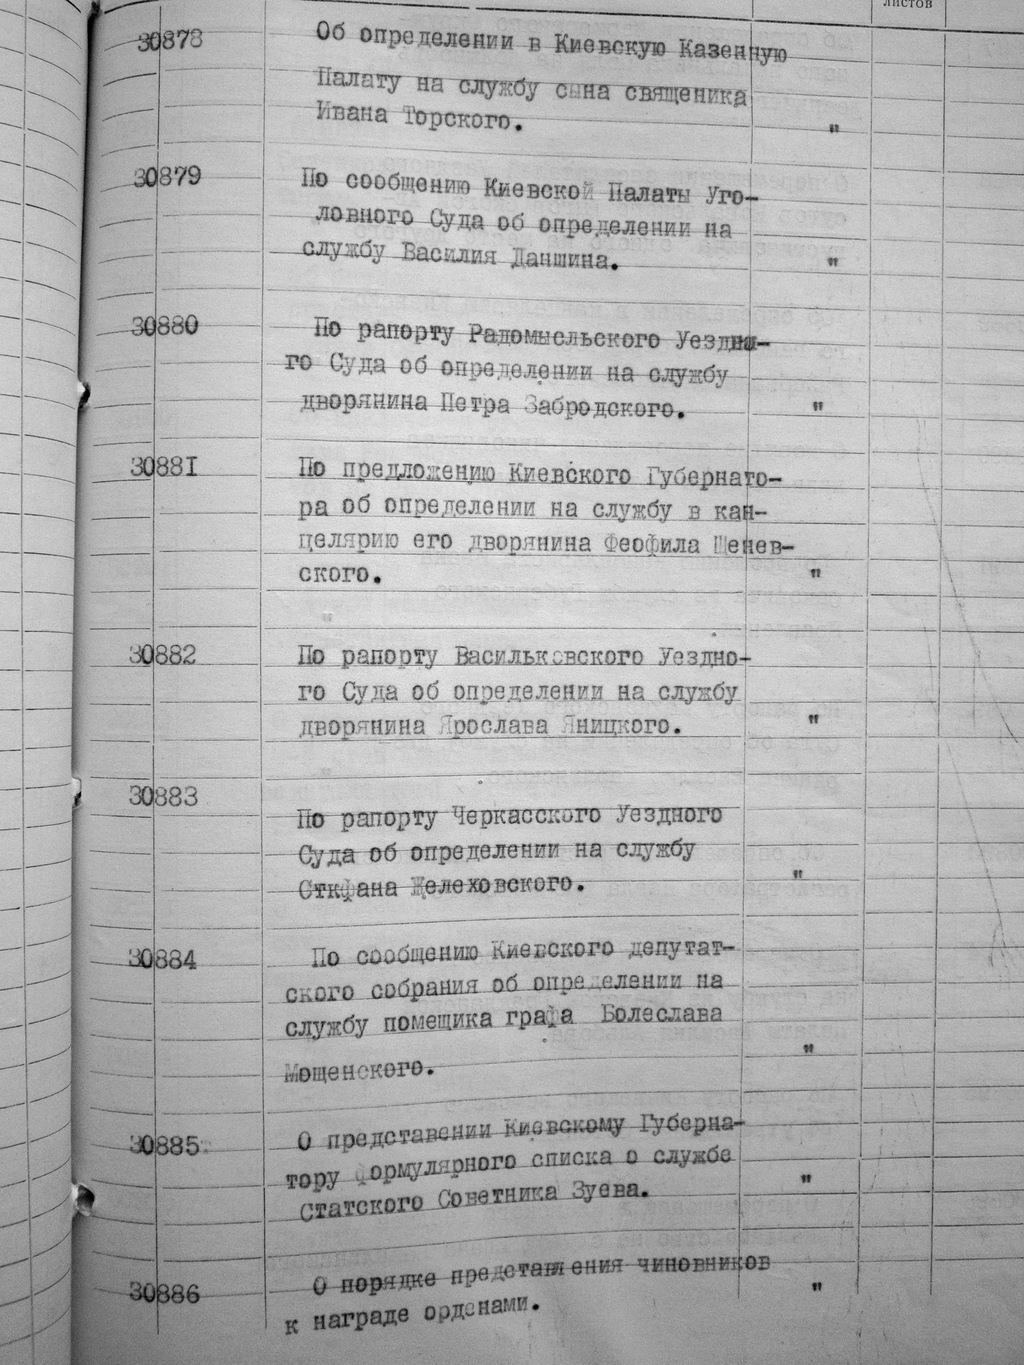 листов
30878 Об определении в Киевскую Казенную
Палату на службу сына священика
Ивана Торского. "
30879 По сообщению Киевской Палаты Уго-
ловного Суда об определении на
службу Василия Даншина. "
30880 По рапорту Радомысльского Уездно-
го Суда об определении на службу
дворянина Петра Забродского. "
30881 По предложению Киевского Губернато-
ра об определении на службу в кан-
целярию его дворянина Феофила Щенев-
ского. "
30882 По рапорту Васильковского Уездно-
го Суда об определении на службу
дворянина Ярослава Яницкого. "
30883
По рапорту Черкасского Уездного
Суда об определении на службу
Сткфана Желеховского. "
30884 По сообщению Киевского депутат-
ского собрания об определении на
службу помещика графа Болеслава
Мощенского. "
30885 О представении Киевскому Губерна-
тору формулярного списка о службе
Статского Советника Зуева. "
30886 О порядке представления чиновников
к награде орденами. "